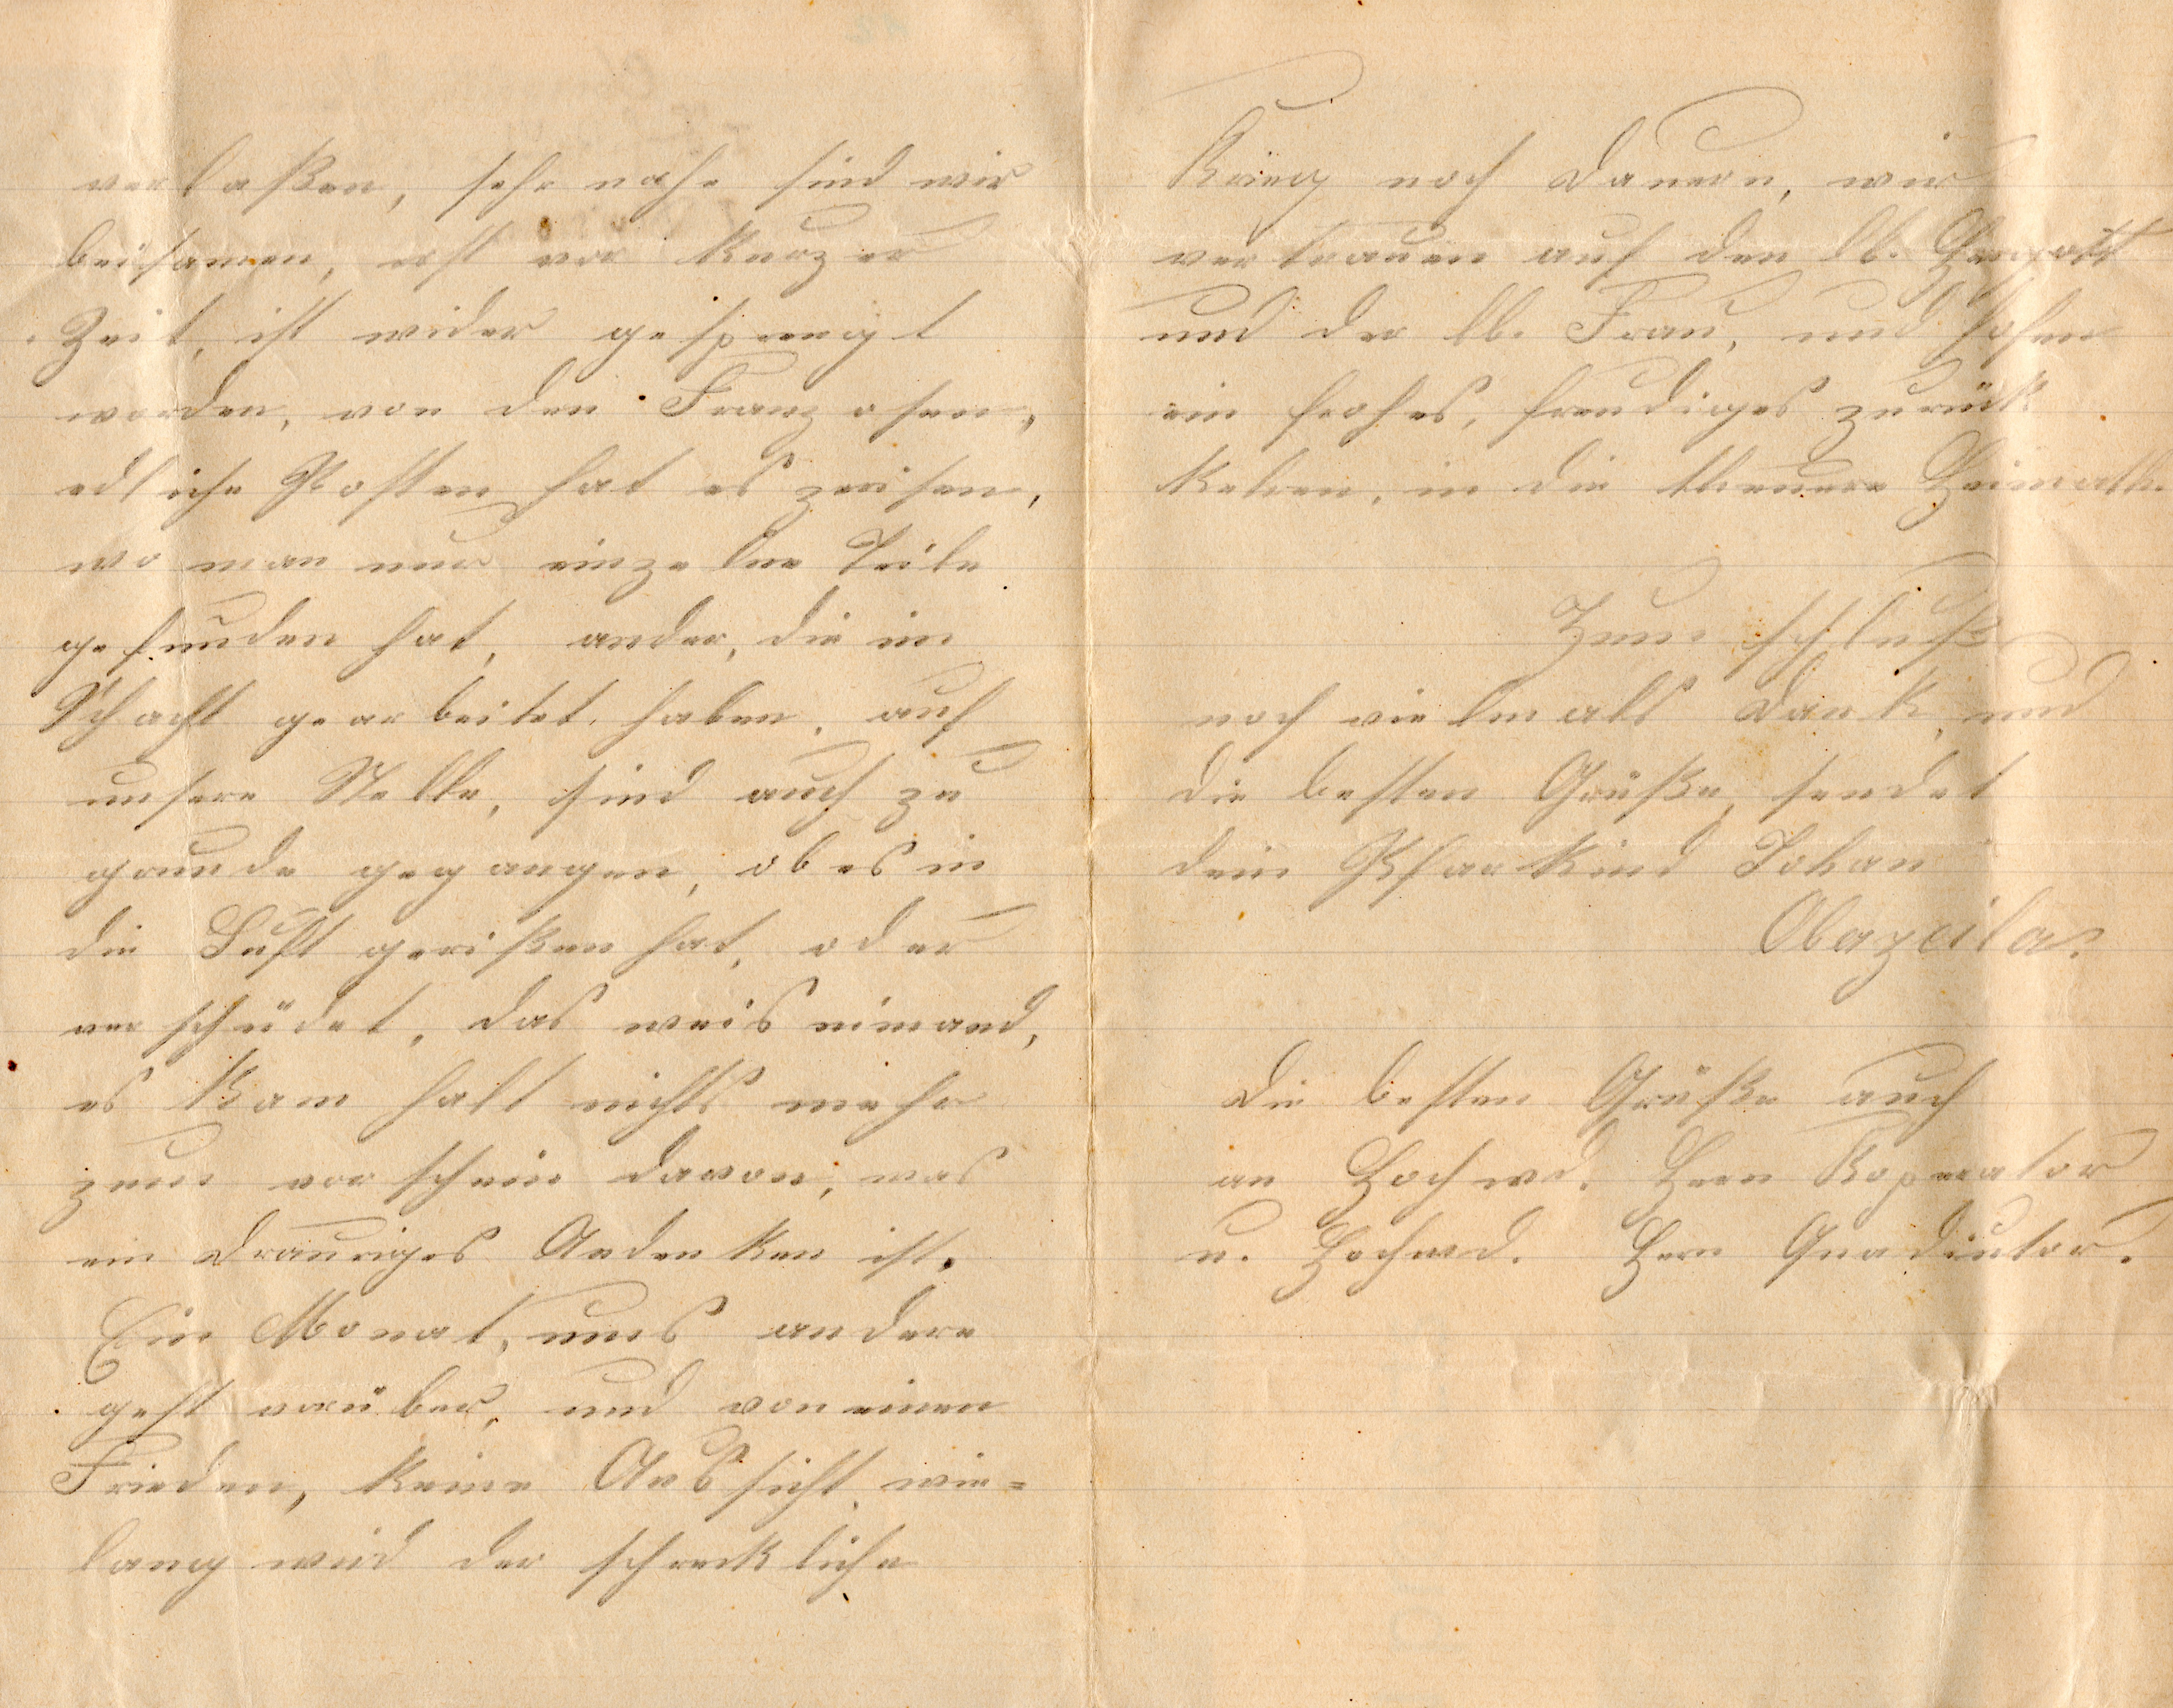 verlaßen, sehr nahe sind wir
beisamen, erst vor kurzer
Zeit, ist wider gesprengt
worden, von den Franzosen,
edliche Posten hat es zerisen,
wo man nur einzelne Teile
gefunden hat, ander, die im
Schacht gearbeitet haben, auf
unsere Stelle, sind auch zu
grunde gegangen, ob es in
die Luft gerißen hat, oder
verschüdet, das weis nimand,
es kam halt nichts mehr
zum vorschein davon, was
ein drauriges Andenken ist.
Ein Monat, ums andere
geht vorüber, und von einen
Frieden, keine Aussicht, wie=
lang wird der schreckliche
Krieg noch dauern, wir
vertrauen auf den lb. Hergott
und der lb. Frau, und hofen
ein frohes, freudiges zurük
kehren, in die theuere Heimath.
Zum schluß
noch vielmals dank, und
die besten Grüße, sendet
dein Pfarkind Johan
Obazeila.
Die besten Grüße auch
an Hochwd. Hern Koperator
u. Hochwd. Hern